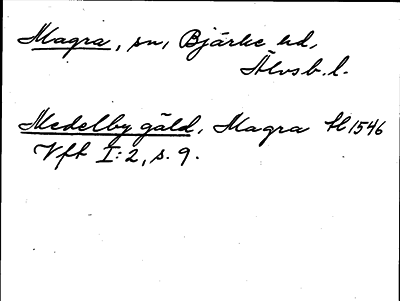 Magra, sn, Bjärke hd,
Älvsb. l.
Medelby gäld, Magra 1546
Vft I:2, s. 9.